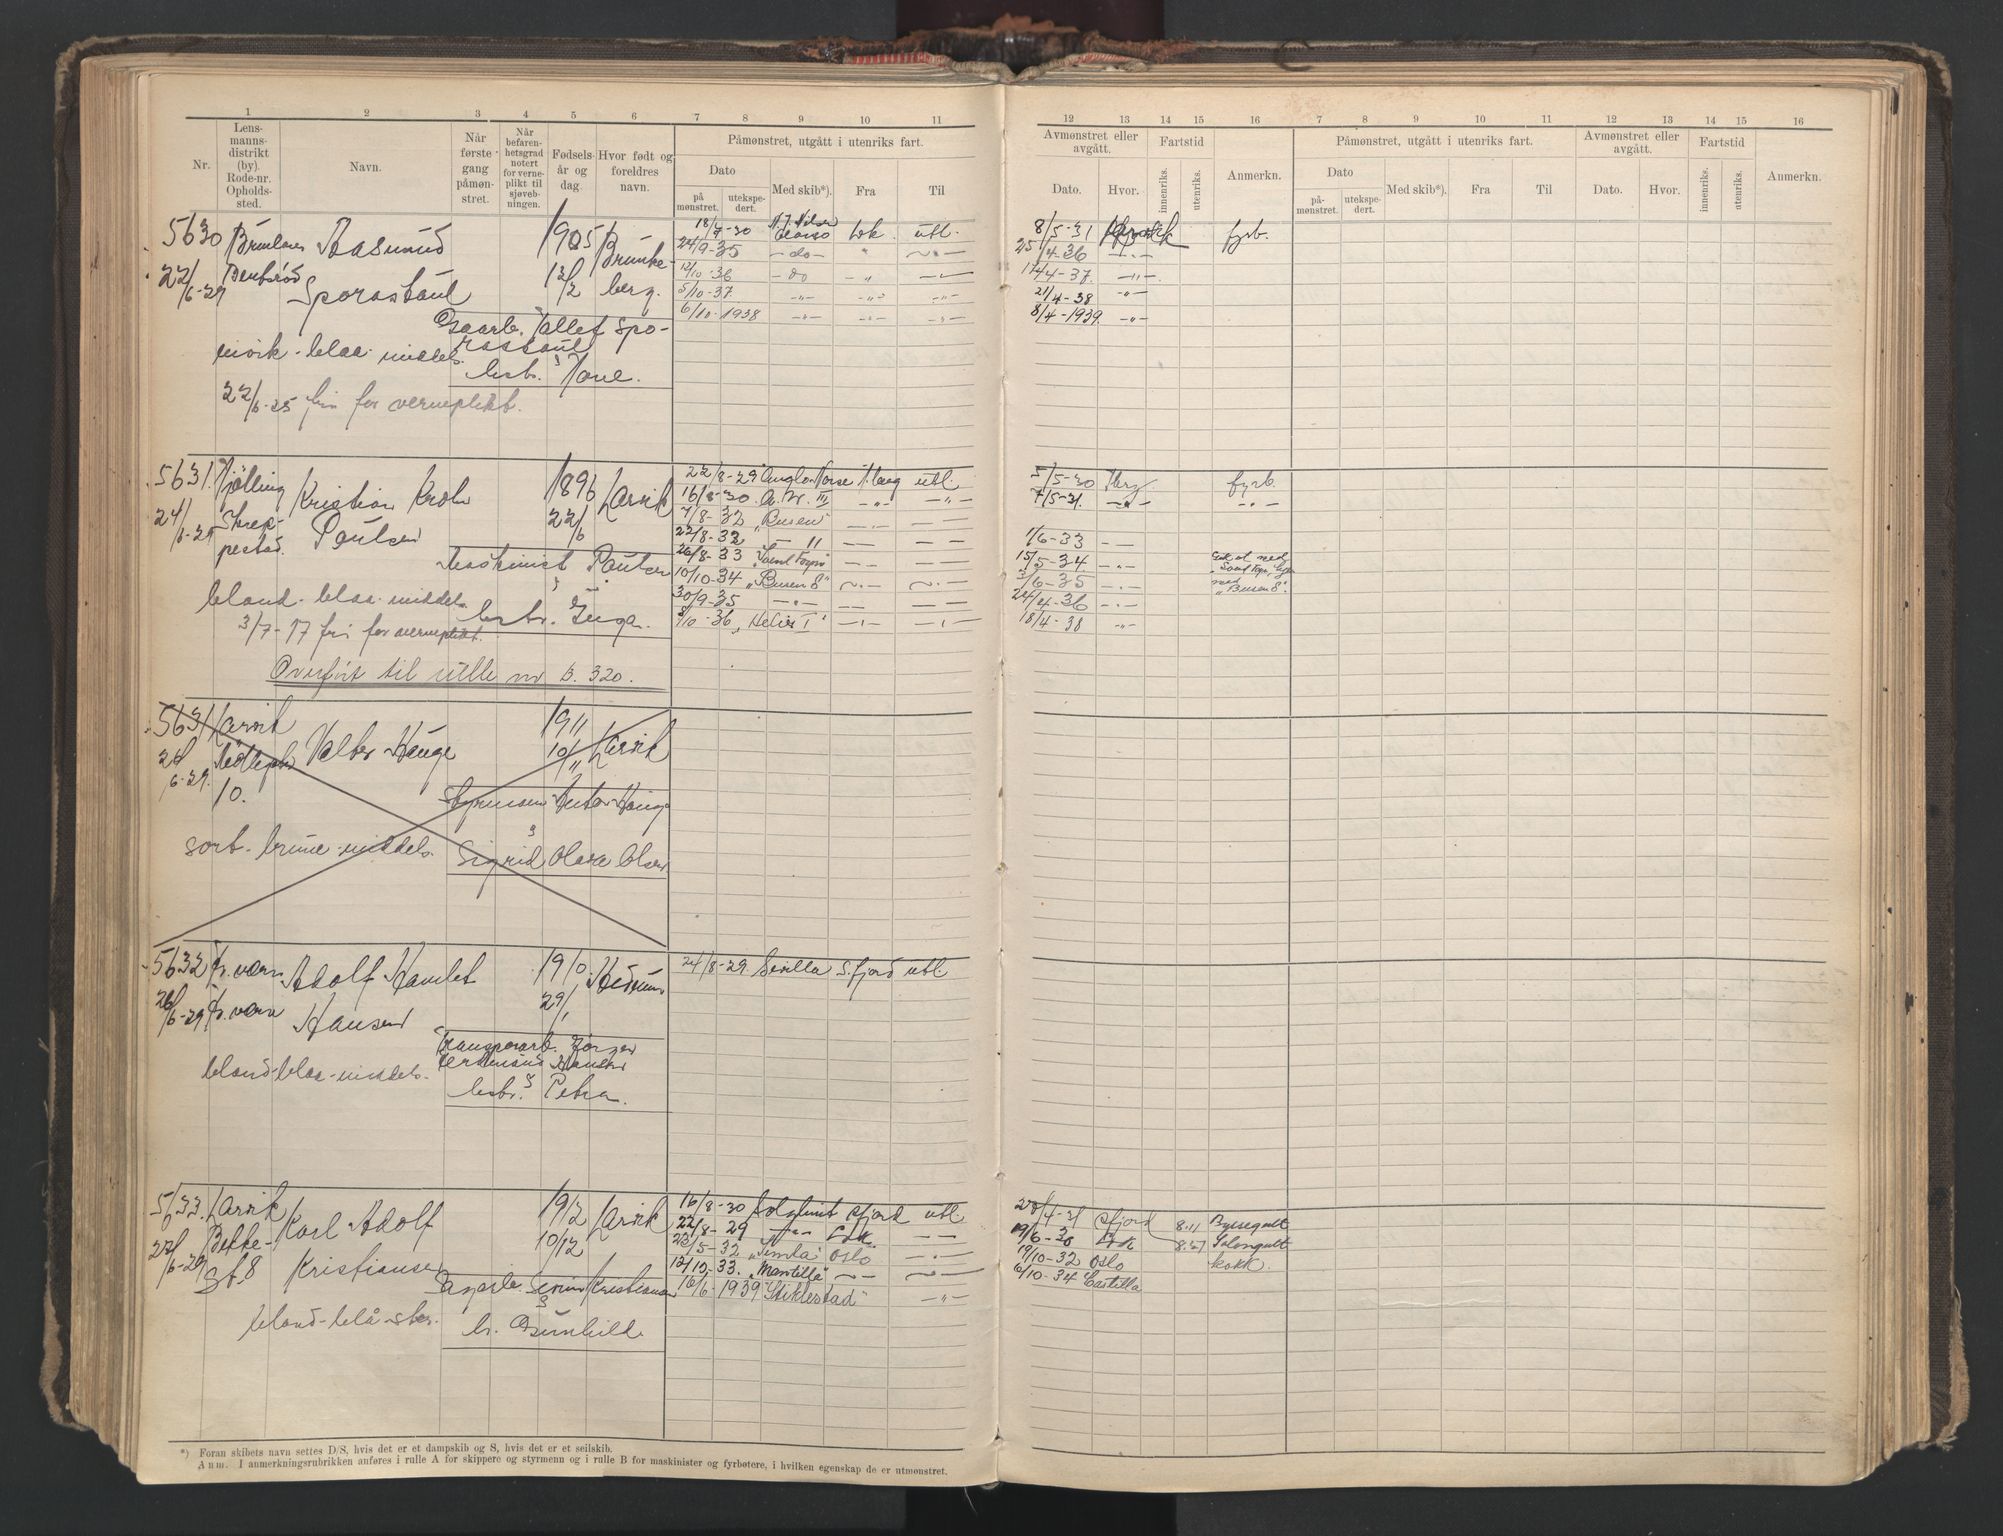 1 2 3 4 5 6 7 8 9 10 11
Nr.
Lens-
manns-
distrikt
(by).
Rode-nr.
Opholds-
sted.
Navn.
Når
første
gang
påmøn-
stret.
Når
befaren-
hetsgrad
notert
for verne-
plikt til
sjøveb-
ningen.
Fødsels-
år og
dag.
Hvor født og
foreldres
navn.
Påmønstret, utgått i utenriks fart.
Dato
på
mønstret.
utekspe-
dert.
Med skib*).
Fra
Til
5630 Brunlanes Aasmund 1905 Brunke-
22/6-29 Sporastaul 12/2 berg.
Gaarb. Tallef Spo-
rastaul
mørk - blaa - middels.
hstr. Tone.
22/6-25 fri for verneplikt.
18/7-30 Lvk. utl.
24/9-35 -do-
12/10-36 -do
5/10-37 -"-
6/10-1938 -"-
5631 Tjølling Kristian Krohn 1896 Larvik
24/6-29 Skrep- Paulsen 22/6
pestad.
Maskinist Paulsen
blond - blaa - middels
hstr. Inga.
3/7-17 fri for verneplikt.
Overført til rulle nr B. 320.
22/8-29 Anglo Norse T.berg utl.
16/8-30 III -"-
7/8-32 "Busen"
22/8-32 — "
26/8-33
10/10-34 "Busen 8"
30/9-35 -"-
5/10-36 "Helios I"
5631 Larvik Valter Hauge 1911 Larvik
24/6-29 10/11
10.
Styrmann Anton Hauge
sort - brune - middels.
Sigrid Olava Olsen
5632 Fr.værn Adolf Hamlet 1910. Hedrum
26/6-29 Fr.værn Hansen 29/1
Transportarb. Jørgen
Ferdinand Hansen
blond-blaa-middels.
hstr. Petra.
24/8-29. Sevilla S.fjord utl.
5633. Larvik Karl Adolf 1912 Larvik
27/6-29 Bekke- Kristiansen 10/12
St. 8
Severin Kristiansen
blond-blå-stor.
h. Gunhild
16/8-30 Solglimt Sfjord utl.
22/8-29 -"- Lvk
23/5-32 "Simla" Oslo
12/10-33. "Mantilla"
16/6-1939 "Stiklestad"
*) Foran skibets navn settes D/S, hvis det er et dampskib og S, hvis det er et seilskib.
Anm. I anmerkningsrubrikken anføres i rulle A for skippere og styrmenn og i rulle B for maskinister og fyrbøtere, i hvilken egenskap de er utmønstret.
12 13 14 15 16 7 8 9 10 11 12 13 14 15 16
Avmønstret eller
avgått.
Dato.
Hvor.
Fartstid
innenriks.
utenriks.
Anmerkn.
Påmønstret, utgått i utenriks fart.
Dato
på-
mønstret.
utekspe-
dert.
Med skib*).
Fra
Til
Avmønstret eller
avgått.
Dato.
Hvor.
Fartstid
innenriks.
utenriks.
Anmerkn.
8/5-31 fyrb.
25/4-36 -"-
17/4-37. -"-
21/4-38 -"-
8/4-1939. -"-
5/5-30 Tbrg fyrb.
7/5-31. -"- -"-
1/6-33 — —
15/5-34. -"- Gikk ut med
3/6-35 -"- med
24/4-36 -"- "Busen 8".
18/4-38 -"-
28/4-31 Sfjord 8.11 Byssegutt
19/6-30 Lvk 8.27 Salongutt
19/10-32 Oslo kokk.
6/10-34 Castilla